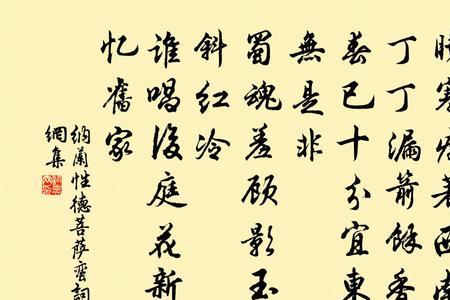 曉寒瘦著西南
丁丁漏箭餘香
春已十分宜東
無是非
蜀魂羞顧影玉
斜紅冷
誰唱後庭花新
忆舊家
納蘭性德菩薩蠻詞
網集